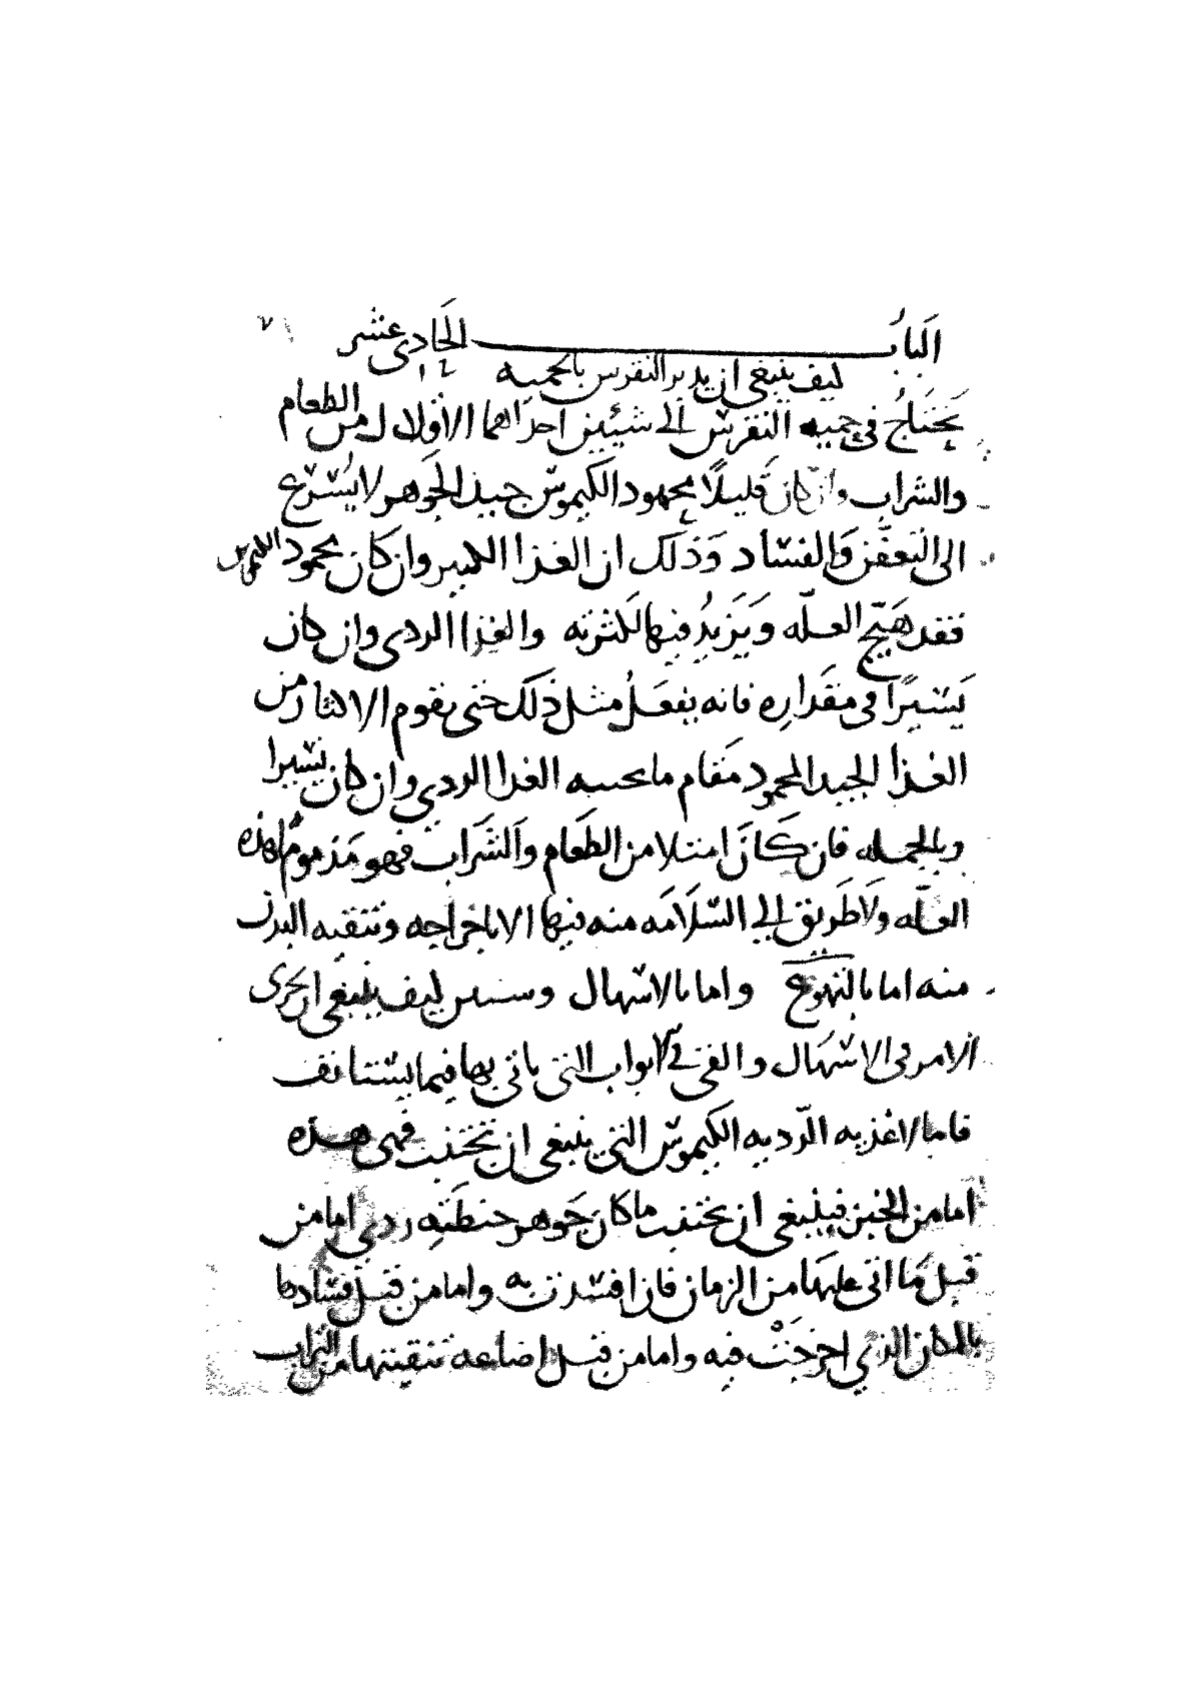 الَبابُ الَحادى عشر ٧
كيف ينبغى ان يدبر النقرس بالحميه
يَحتَاجُ فى حميه النقرس الى شيئين احدَاهما الاقلال من الطعام
والشراب وان كان قَليلًا محمود الكيموس جيد الجَوهر لا يُسْرع
الى التعفّن وَالفسَاد وَذلك ان الغذا الكثير وان كَان محمود الكيموس
فقد هَيّج العلّه وَيَزيدُ فيها لكَثرته والغذا الردى وان كان
يَسيرًا فى مقدَاره فانه يفعَلُ مثل ذَلك حتى يقوم الاكثار من
الغذا الجيد المحمود مَقام ما يجنيه الغذا الردى وان كان يسيرا
وبالجمله فان كَانَ امتلا من الطَعام وَالشَراب فهو مَذموم لهذه
العلّه ولَا طَريق الى السَلَامَه منه فيها الا باخراجه وتنقيه البدن
منه اما بالتهوع واما بالاسهال وسنبين كيف ينبغى ان يجرى
الامر فى الاسهَال والقى فى الابواب التى ياتى بها فيما يستانف
فاما الاغذيه الرّديه الكيموس التى ينبغى ان تجتنب فهى هذه
اما من الخبز فينبغى ان يجتنب ما كان جَوهر حنطَته ردى اما من
قبل مَا اتى عليهَا من الزمان فان افسدت به واما من قبل فسادها
بالمكان الذى اخرجَتْ فيه واما من قبل اضاعه تنقيتها من التراب